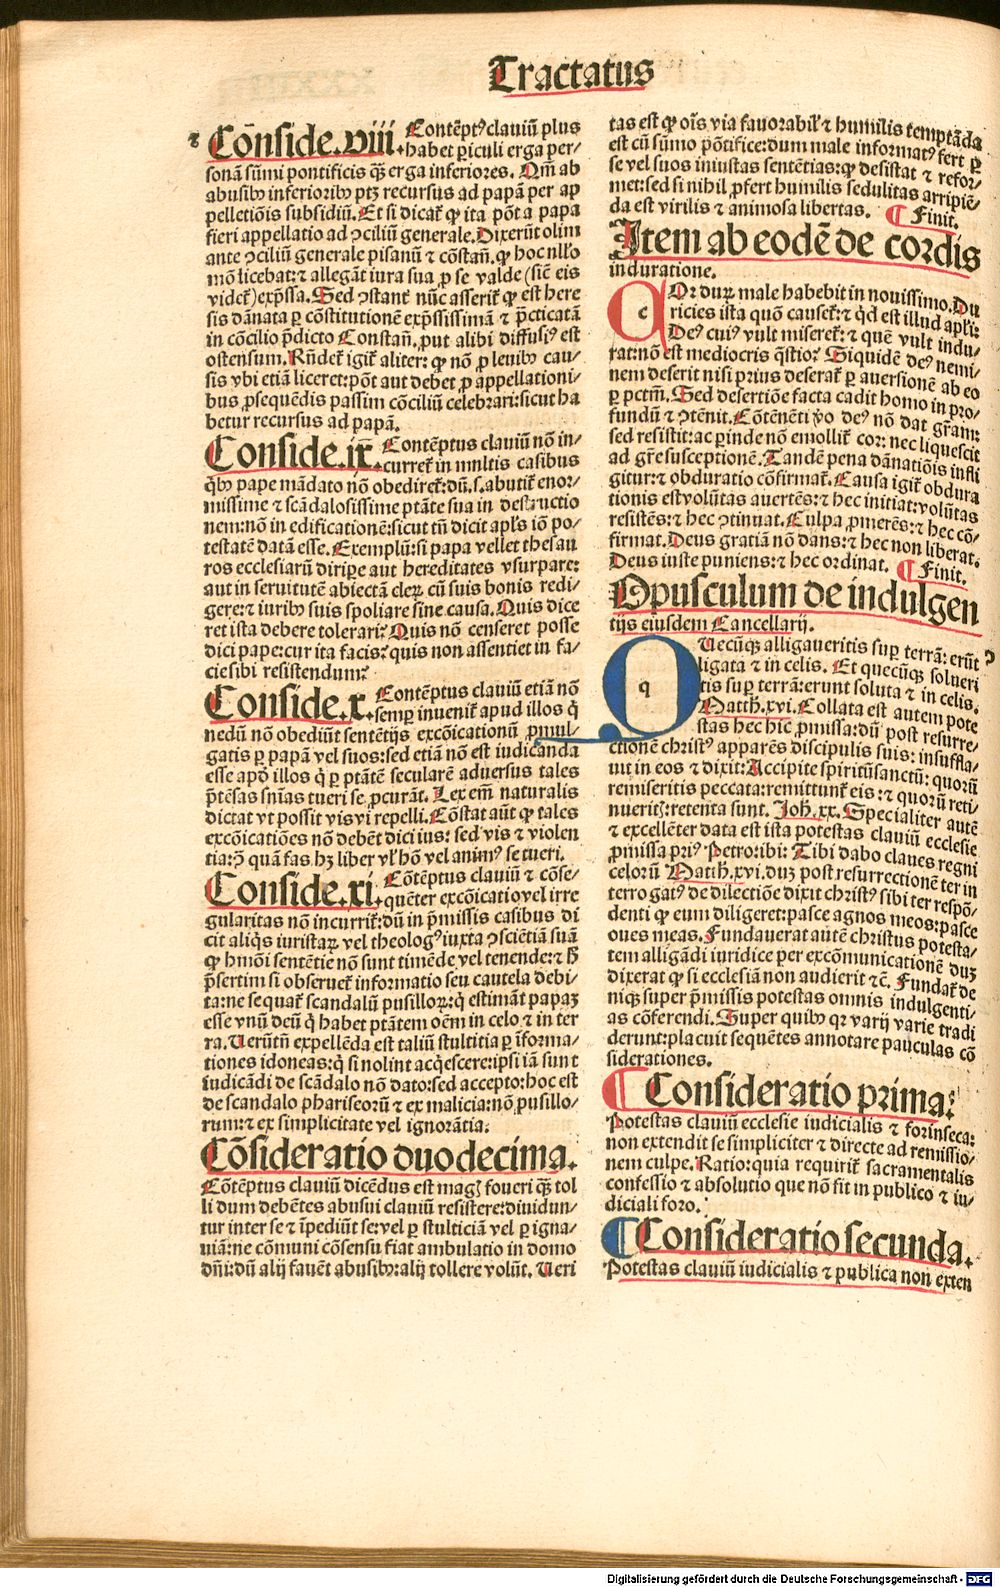 Tractatus
Cōnside.viii. Contēpt⁹ clauiū plus
habet ꝑiculi erga per-
sonā sūmi pontificis qȝ̄ erga inferiores. Qm̄ ab
abusibꝰ inferioribꝰ ptȝ recursus ad papā per ap
pelletiōis subsidiū. Et si dicat̄ ꝙ ita pōt a papa
fieri appellatio ad ꝯciliū generale. Dixerūt olim
ante ꝯciliū generale pisanū ⁊ cōstan̄. ꝙ hoc nłło
mō licebat: ⁊ allegāt iura sua ꝓ se valde (sic̄ eis
videt̄) exp̄ssa. Sed ꝯstant̄ nūc asserit̄ ꝙ est here
sis dānata ꝑ cōstitutionē exp̄ssissimā ⁊ p̄cticatā
in cōcilio p̄dicto Constan̄. put alibi diffusi⁹ est
ostensum. Rn̄det̄ igit̄ aliter: ꝙ nō ꝓ leuibꝰ cau/
sis vbi etiā liceret: pōt aut debet ꝓ appellationi/
bus ꝓsequēdis passim cōciliū celebrari: sicut ha
betur recursus ad papā.
Conside.ix. Contēptus clauiū nō in-
curret̄ in mnltis casibus
qͥbꝰ pape mādato nō obediret̄: dū. s. abutit̄ enor-
missime ⁊ scādalosissime ptāte sua in destructio
nem: nō in edificationē: sicut tn̄ dicit apłs iō po/
testatē datā esse. Exemplū: si papa vellet thesau
ros ecclesiarū diripe aut hereditates vsurpare:
aut in seruitutē abiectā cleꝝ cū suis bonis redi-
gere: ⁊ iuribꝰ suis spoliare sine causa. Quis dice
ret ista debere tolerari? Quis nō censeret posse
dici pape: cur ita facis? quis non assentiet in fa/
ciesibi resistendum?
Conside.x. Contēptus clauiū etiā nō
semꝑ inuenit̄ apud illos q̇
nedū nō obediūt sentētijs excōicationū ꝓmul-
gatis ꝑ papā vel suos: sed etiā nō est iudicanda
esse apd̓ illos q̇ ꝑ ptātē secularē aduersus tales
p̄tēsas snīas tueri se ꝓcurāt. Lex em̄ naturalis
dictat vt possit vis vi repelli. Cōstat aūt ꝙ tales
excōicatiōes nō debēt dici ius: sed vis ⁊ violen
tia: ꝯ̄ quā fas hȝ liber vł hō vel anim⁹ se tueri.
Conside.xi. Cōtēptus clauiū ⁊ cōse/
quēter excōicatio vel irre
gularitas nō incurrit̄: dū in p̄missis casibus di
cit aliq̇s iuristaꝝ vel theolog⁹ iuxta ꝯsciētiā suā
ꝙ hmōi sentētie nō sunt timēde vel tenende: ⁊ ħ
p̄sertim si obseruet̄ informatio seu cautela debi-
ta: ne sequat̄ scandalū pusilloꝝ: q̇ estimāt papaȝ
esse vnū deū q̇ habet ptātem oēm in celo ⁊ in ter
ra. Uerūtn̄ expellēda est taliū stultitia ꝑ īforma/
tiones idoneas: q̇ si nolint acq̇escere: ipsi iā sunt
iudicādi de scādalo nō dato: sed accepto: hoc est
de scandalo phariseorū ⁊ ex malicia: nō pusillo/
rum: ⁊ ex simplicitate vel ignorātia.
Cōsideratio duodecima.
Cōtēptus clauiū dicēdus est magȝ foueri qȝ̄ tol
li dum debētes abusui clauiū resistere: diuidun/
tur inter se ⁊ īpediūt se: vel ꝑ stulticiā vel ꝑ igna/
uiā: ne cōmuni cōsensu fiat ambulatio in domo
dn̄i: dū alij fauēt abusibꝰ: alij tollere volūt. Ueri
tas est ꝙ oīs via fauorabił ⁊ humilis temptāda
est cū sūmo pōtifice: dum male informat⁹ fert ꝑ
se vel suos iniustas sentētias: ꝙ desistat ⁊ refor/
met: sed si nihil ꝓfert humilis sedulitas arripiē/
da est virilis ⁊ animosa libertas. ¶ Finit.
Item ab eodē de cordis
induratione.
c
COr durȝ male habebit in nouissimo. Du
ricies ista quō causet̄: ⁊ qd̓ est illud apłi:
De⁹ cui⁹ vult miseret̄: ⁊ quē vult indu/
rat: nō est mediocris q̄stio? Siquidē de⁹ nemi/
nem deserit nisi prius deserat̄ ꝑ auersionē ab eo
ꝑ pctm̄. Sed desertiōe facta cadit homo in pro/
fundū ⁊ ꝯtēnit. Cōtēnēti v̓o de⁹ nō dat gr̄am:
sed resistit: ac ꝑinde nō emollit̄ cor: nec liquescit
ad gr̄e susceptionē. Tandē pena dānatiōis infli
gitur: ⁊ obduratio cōfirmat̄. Causa igit̄ obdura
tionis est volūtas auertēs: ⁊ hec initiat: volūtas
resistēs: ⁊ hec ꝯtinuat. Culpa ꝓmerēs: ⁊ hec cō/
firmat. Deus gratiā nō dans: ⁊ hec non liberat.
Deus iuste puniens: ⁊ hec ordinat. ¶ Finit.
Opusculum de indulgen
tijs eiusdem Cancellarij.
q
QUecūqȝ alligaueritis suꝑ terrā: erūt
ligata ⁊ in celis. Et quecūqȝ solueri
tis suꝑ terrā: erunt soluta ⁊ in celis.
Matth.xvi. Collata est autem pote
stas hec hic ꝓmissa: dū post resurre/
ctionē christ⁹ apparēs discipulis suis: insuffla/
uit in eos ⁊ dixit: Accipite spiritūsanctū: quorū
remiseritis peccata: remittunt̄ eis: ⁊ quorū reti/
nueritȝ: retenta sunt. Joh.xx. Specialiter autē
⁊ excellēter data est ista potestas clauiū ecclesie
ꝓmissa pri⁹ Petro: ibi: Tibi dabo claues regni
celorū Matth.xvi. duȝ post resurrectionē ter in
terrogat⁹ de dilectiōe dixit christ⁹ sibi ter respō/
denti ꝙ eum diligeret: pasce agnos meos: pasce
oues meas. Fundauerat autē christus potesta/
tem alligādi iuridice per excōmunicationē duȝ
dixerat ꝙ si ecclesiā non audierit ⁊c̄. Fundat̄ de
niqȝ super p̄missis potestas omnis indulgenti/
as cōferendi. Super quibꝰ qꝛ varij varie tradi
derunt: placuit sequētes annotare pauculas cō
siderationes.
¶ Consideratio prima:
Potestas clauiū ecclesie iudicialis ⁊ forinseca:
non extendit se simpliciter ⁊ directe ad remissio/
nem culpe. Ratio: quia requirit̄ sacramentalis
confessio ⁊ absolutio que nō fit in publico ⁊ iu/
diciali foro.
¶ Consideratio secunda.
Potestas clauiū iudicialis ⁊ publica non exten
Digitalisierung gefördert durch die Deutsche Forschungsgemeinschaft - DFG